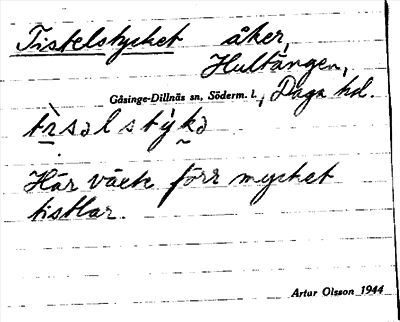 Tistelstycket åker,
Hultängen,
Gåsinge-Dillnäs sn, Söderm. l., Daga hd.
tìsəl stỳkə
Här växte förr mycket
tistlar.
Artur Olsson 1944